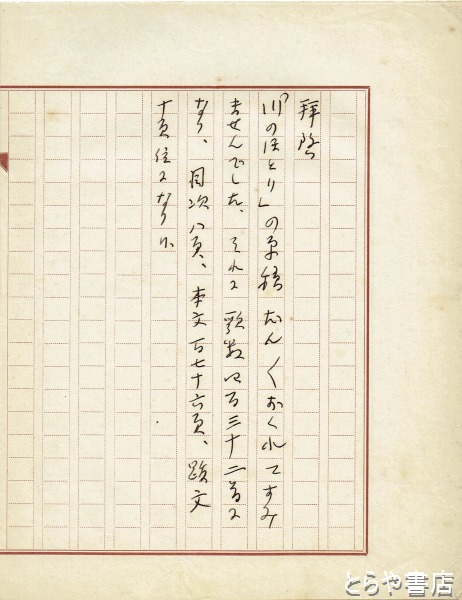 拝啓
「川のほとり」の原稿 だん〱おくれてすみ
ませんでした、それに歌数四百三十二首に
なり、目次八頁、本文百七十六頁、跋文
十頁位になり
とらや書店